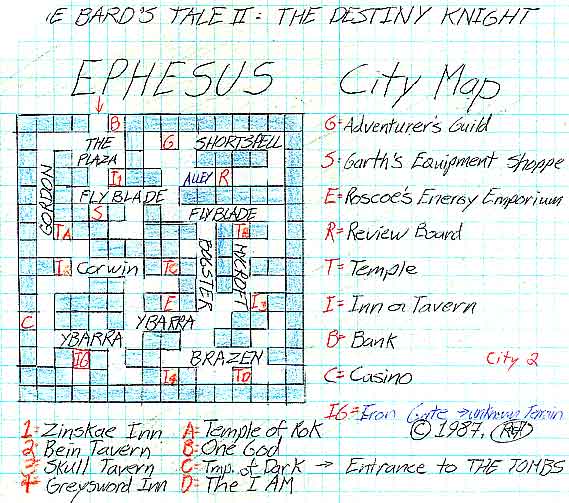 E BARD'S TALE II: THE DESTINY KNIGHT
EPHESUS City Map
B
G
THE PLAZA
SHORTSPELL
GORDON
I1
ALLEY
R
FLYBLADE
S
FLYBLADE
TA
TB
BOLSTER
MYCROFT
I2
Corwin
TC
E
I3
C
YBARRA
YBARRA
IG
BRAZEN
I4
TD
G=Adventurer's Guild
S=Garth's Equipment Shoppe
E=Roscoe's Energy Emporium
R=Review Board
T=Temple
I=Inn or Tavern
B=Bank
City 2
C=Casino
IG=Iron Gate → unknown Terrain
© 1987,
1=Zinskae Inn A=Temple of Rok
2=Bein Tavern B=One God
3=Skull Tavern C=Tmp. of Dark → Entrance to THE TOMBS
4=Greysword Inn D=The I AM